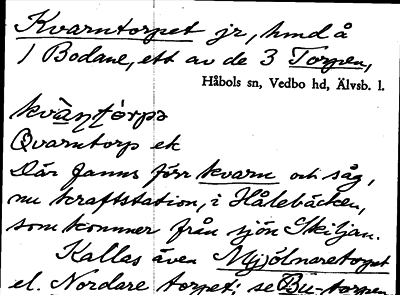 Kvarntorpet jr, hmd å
1 Bodane, ett av de 3 Torpen,
Håbols sn, Vedbo hd, Älvsb. l.
Qvarntorp ek
Där fanns förr kvarn och såg,
nu kraftstation, i Hålebäcken,
som kommer från sjön Skiljan.
Kallas även Mjölnaretorpet
el. Nordare torpet; se Bü-torpen